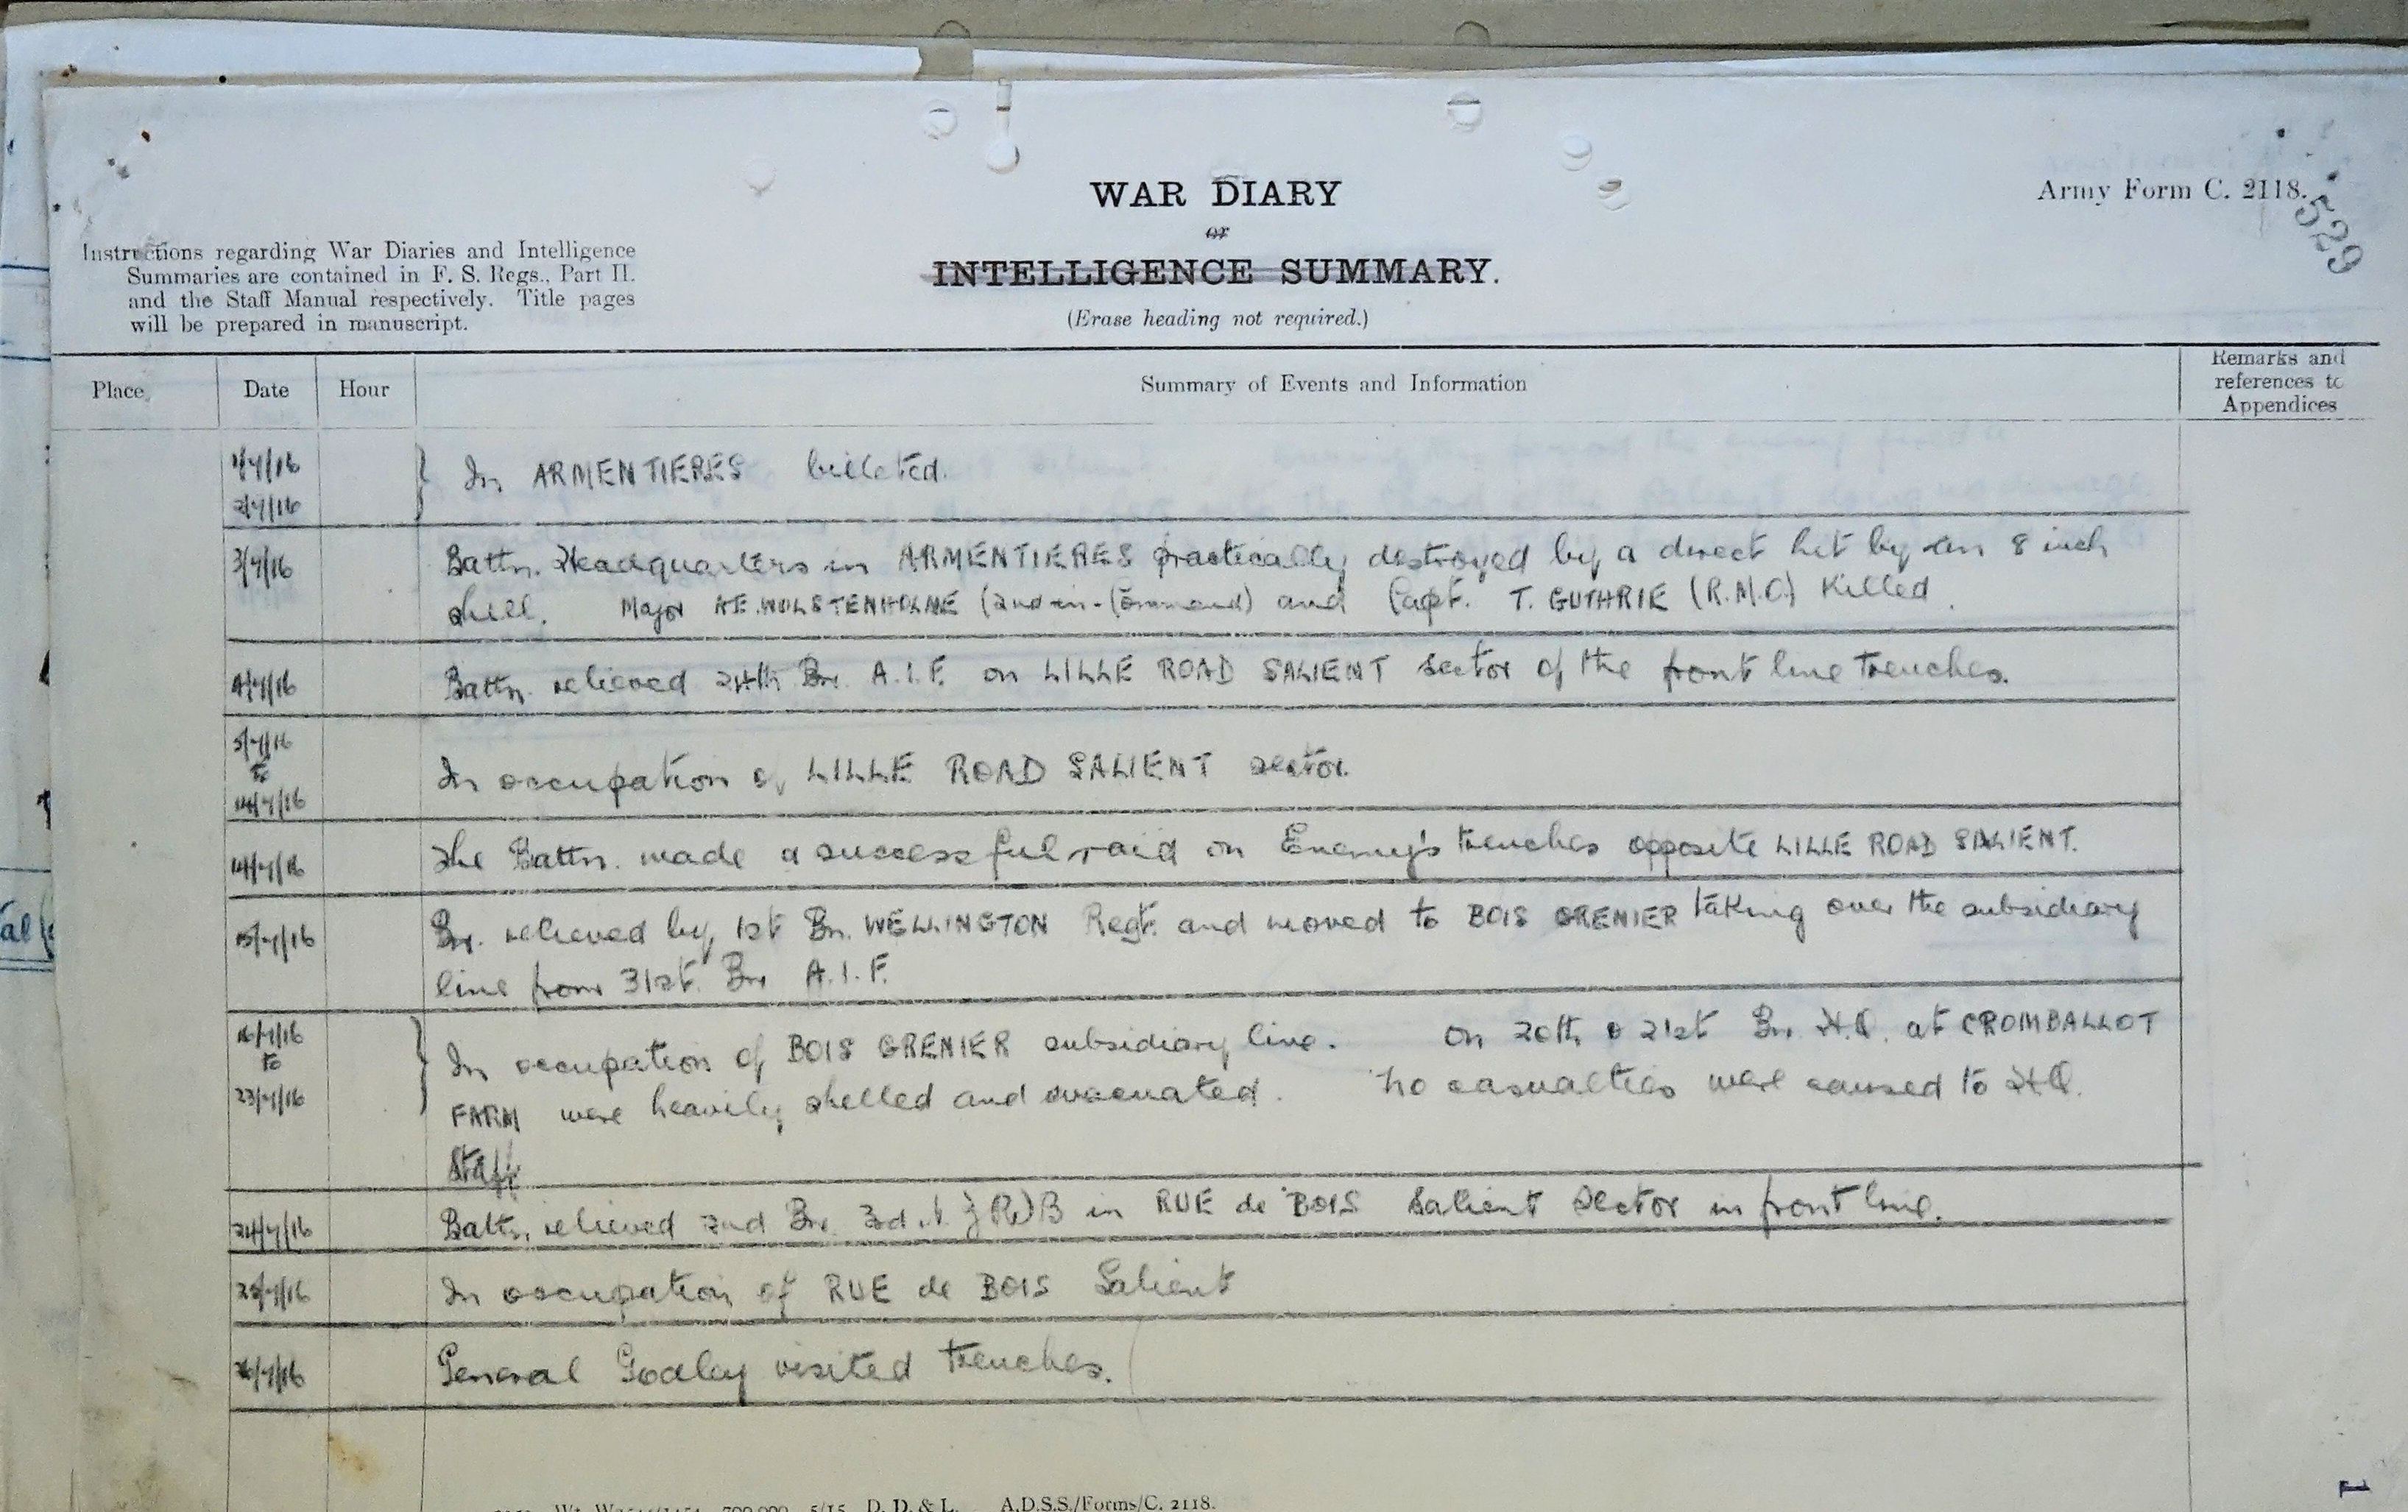 WAR DIARY
or
INTELLIGENCE SUMMARY.
(Erase heading not required.)
Army Form C. 2118.
529
Instructions regarding War Diaries and Intelligence
Summaries are contained in F. S. Regs., Part II.
and the Staff Manual respectively. Title pages
will be prepared in manuscript.
Place Date Hour Summary of Events and Information Remarks and
references to
Appendices
1/7/16
2/7/16
In ARMENTIERES billeted.
3/7/16 Battn. Headquarters in ARMENTIERES practically destroyed by a direct hit by an 8 inch
shell. Major A.E. WOLSTENHOLME (2nd-in-Command) and Capt. T. GUTHRIE (R.M.O.) Killed.
4/7/16 Battn. relieved 24th Bn. A.I.F. on LILLE ROAD SALIENT sector of the front line trenches.
5/7/16
to
14/7/16
In occupation of LILLE ROAD SALIENT sector.
14/7/16 The Battn. made a successful raid on Enemy's trenches opposite LILLE ROAD SALIENT.
15/7/16 Bn. relieved by 1st Bn. WELLINGTON Regt. and moved to BOIS GRENIER taking over the subsidiary
line from 31st. Bn A.I.F.
16/7/16
to
23/7/16
In occupation of BOIS GRENIER subsidiary line. On 20th & 21st Bn. H.Q. at CROMBALLOT
FARM were heavily shelled and evacuated. No casualties were caused to H.Q.
Staff
24/7/16 Battn. relieved 2nd Bn. 3rd N.Z.(R)B in RUE de BOIS Salient Sector in front line.
25/7/16 In occupation of RUE de BOIS Salient
26/7/16 General Godley visited trenches.
700,000 5/15 D. D. & L. A.D.S.S./Forms/C. 2118.